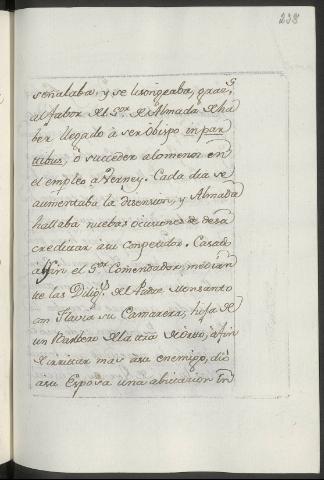 238
señalaba, y se lisongeaba, gracs
al fabor del Sor de Almada de ha
ber llegado à ser Obispo in par
tibus, ò succeder alomenos en
el empleo a Verney. Cada dia se
aumentaba la disension, y Almada
hallaba nuebas ocasiones de desa
creditar à su Competidor. Casose
à fin el Sor Comendador, median
te las Diligs del Padre Monsanto
con Flavia su Camarera, hija de
un Barbero de la
à fin
de irritar mas à su enemigo, dió
à su Esposa una abitacion en